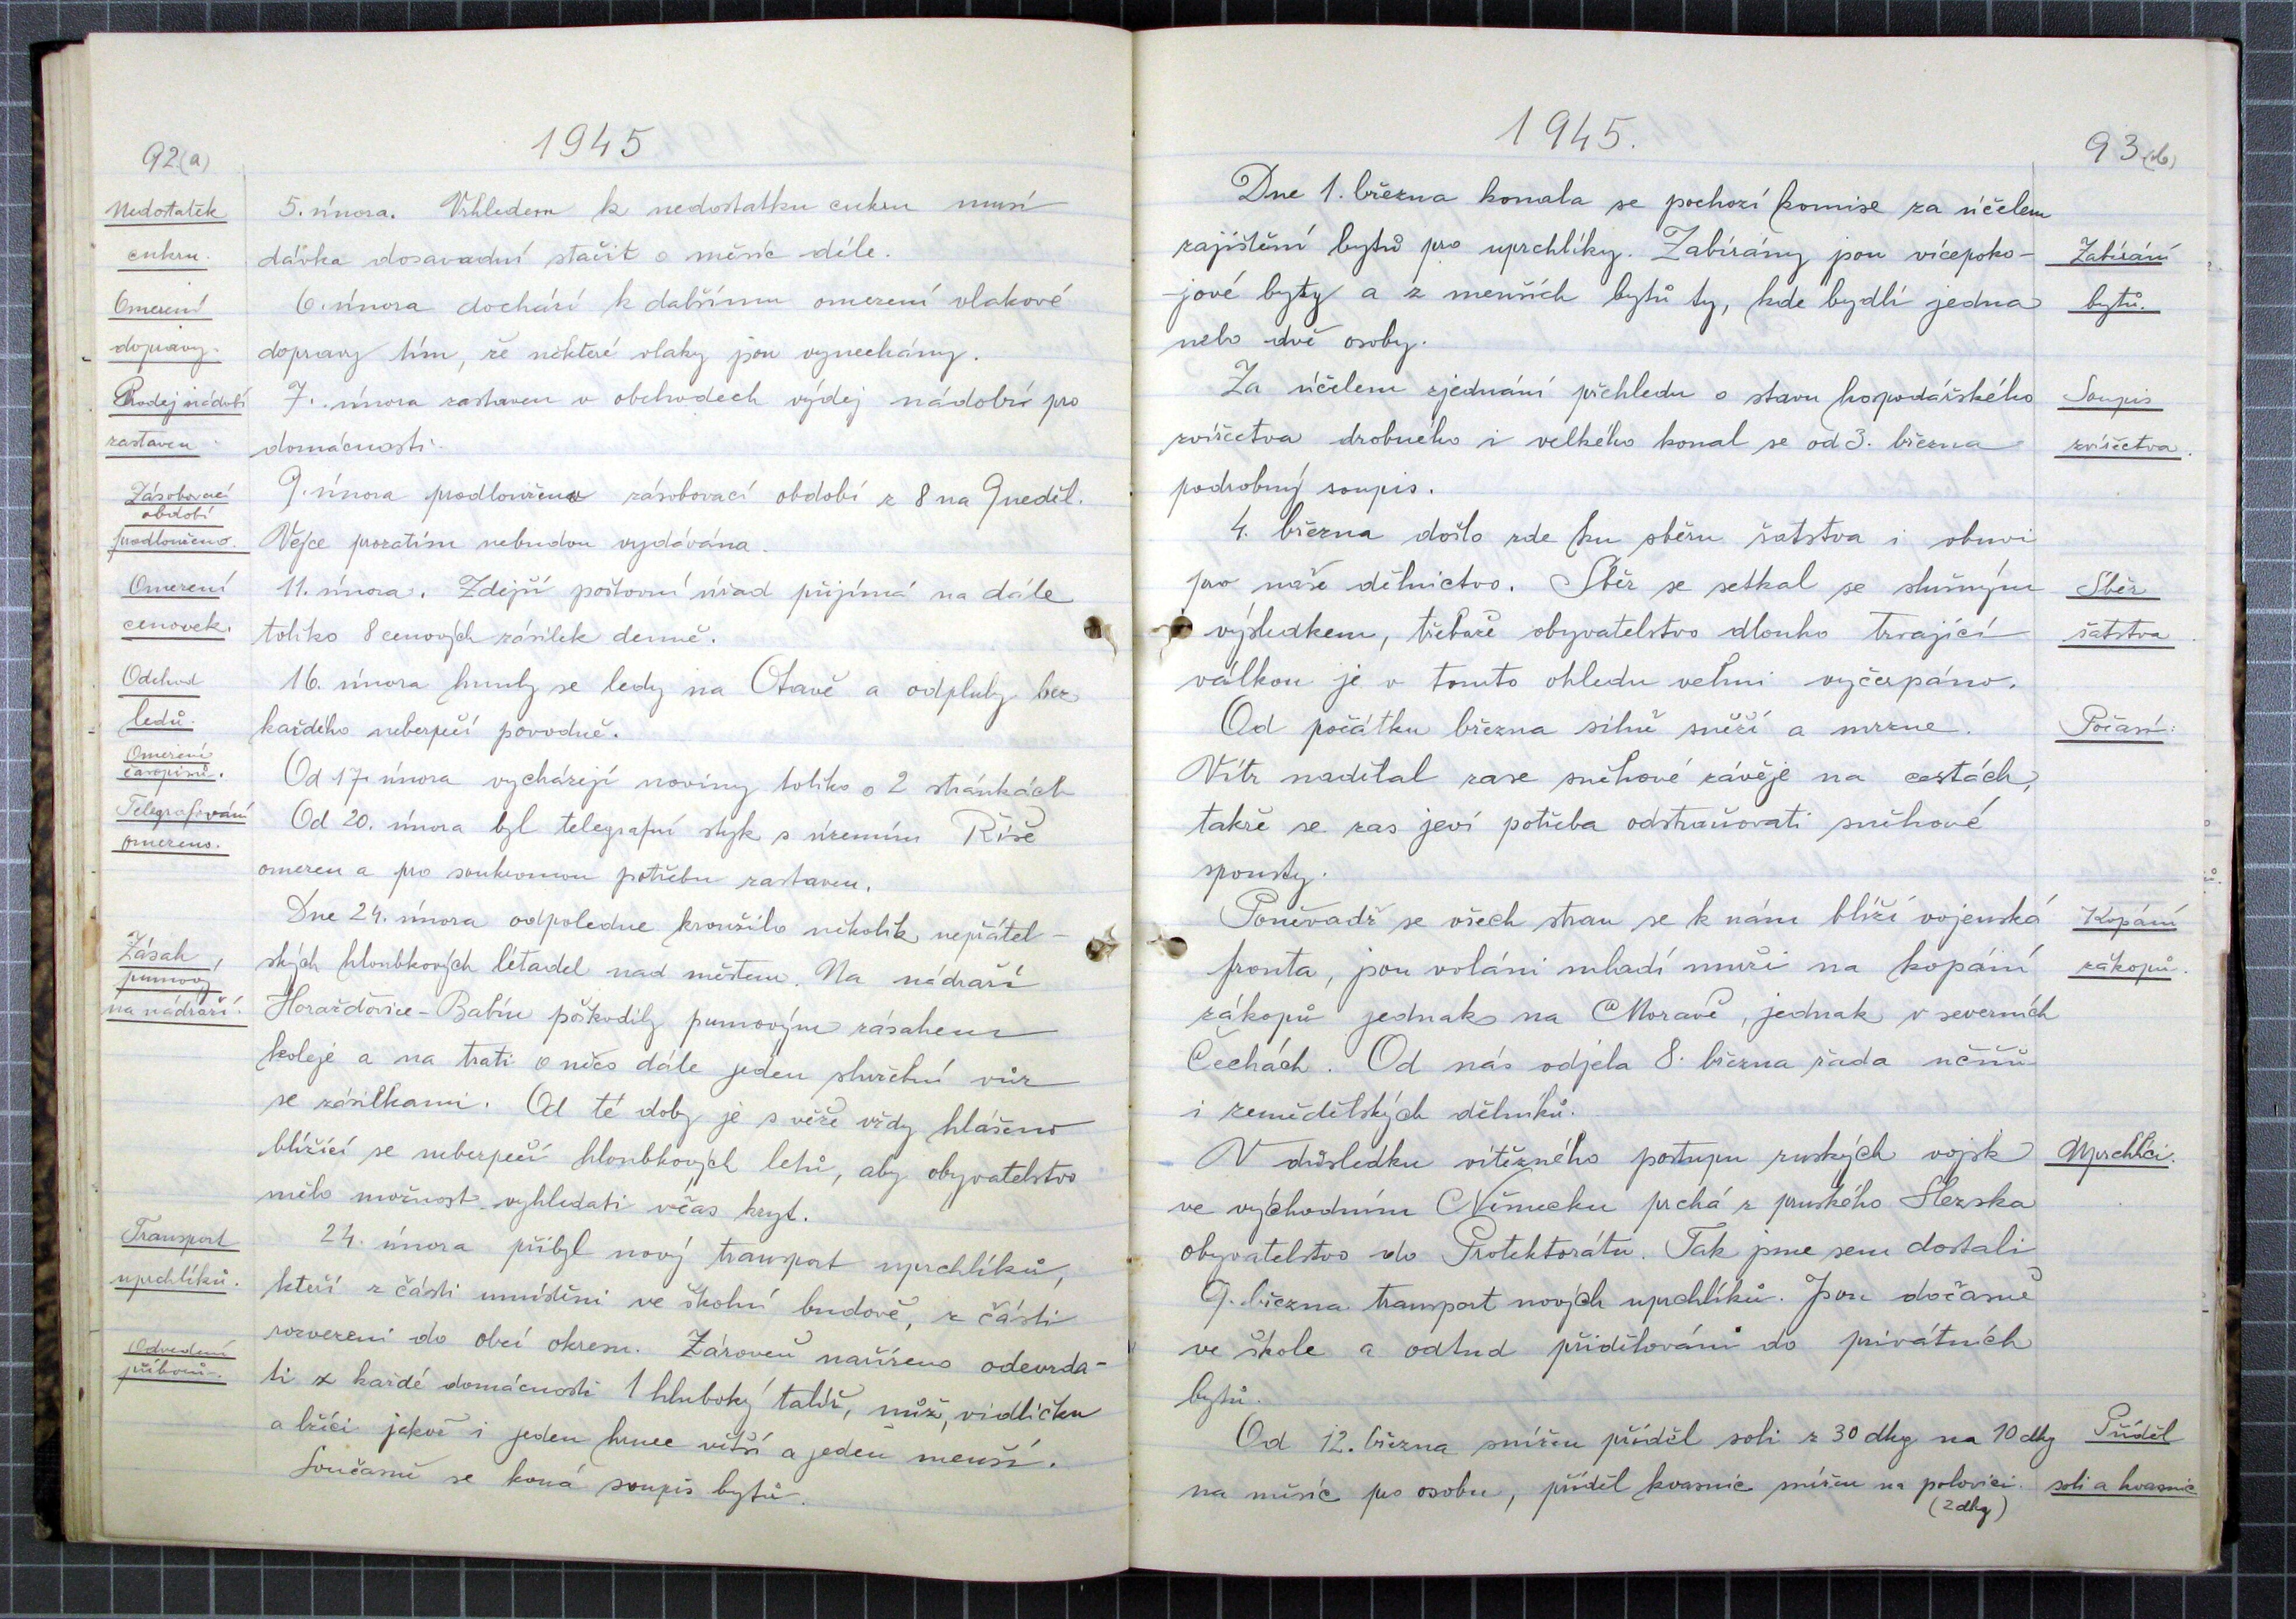 92(a)
1945
Nedostatek
cukru.
5. února. Vzhledem k nedostatku cukru musí
dávka dosavadní stačit o měsíc déle.
Omezení
dopravy.
6. února dochází k dalšímu omezení vlakové
dopravy tím, že některé vlaky jsou vynechány.
Prodej nádobí
zastaven.
7. února zastaven v obchodech výdej nádobí pro
domácnosti.
Zásobovací
období
prodlouženo.
9. února prodlouženo zásobovací období z 8 na 9 neděl.
Vejce prozatím nebudou vydávána.
Omezení
cenovek.
11. února. Zdejší poštovní úřad přijímá na dále
toliko 8 cenových zásilek denně.
Odchod
ledů.
16. února hnuly se ledy na Otavě a odpluly bez
každého nebezpečí povodně.
Omezení
časopisů.
Od 17. února vycházejí noviny toliko o 2 stránkách
Telegrafování
omezeno.
Od 20. února byl telegrafní styk s územím Říše
omezen a pro soukromou potřebu zastaven.
Zásah
pumový
na nádraží.
Dne 24. února odpoledne kroužilo několik nepřátel-
ských hloubkových létadel nad městem. Na nádraží
Horažďovice-Babín poškodily pumovým zásahem
koleje a na trati o něco dále jeden služební vůz
se zásilkami. Od té doby je s věže vždy hlášeno
blížící se nebezpečí hloubkových letů, aby obyvatelstvo
mělo možnost vyhledati včas kryt.
Transport
uprchlíků.
24. února přibyl nový transport uprchlíků,
kteří z části umístěni ve školní budově, z části
rozvezeni do obcí okresu. Zároveň nařízeno odevzda-
Odvedení
příborů.
ti z každé domácnosti 1 hluboký talíř, nůž, vidličku
a lžíci jakož i jeden hrnec větší a jeden menší.
Současně se koná soupis bytů.
1945.
93(b)
Dne 1. března konala se pochozí komise za účelem
zajištění bytů pro uprchlíky. Zabírány jsou vícepoko-
-jové byty a z menších bytů ty, kde bydlí jedna
nebo dvě osoby.
Zabírání
bytů.
Za účelem zjednání přehledu o stavu hospodářského
zvířectva drobného i velkého konal se od 3. března
podrobný soupis.
Soupis
zvířectva.
4. března došlo zde ku sběru šatstva i obuvi
pro naše dělnictvo. Sběr se setkal se slušným
výsledkem, třebaže obyvatelstvo dlouho trvající
válkou je v tomto ohledu velmi vyčerpáno.
Sběr
šatstva
Od počátku března silně sněží a mrzne.
Vítr nadělal zase sněhové závěje na cestách,
takže se zas jeví potřeba odstraňovati sněhové
spousty.
Počasí:
Poněvadž se všech stran se k nám blíží vojenská
fronta, jsou voláni mladí muži na kopání
zákopů jednak na Moravě, jednak v severních
Čechách. Od nás odjela 8. března řada učňů
i zemědělských dělníků.
Kopání
zákopů.
V důsledku vítězného postupu ruských vojsk
ve východním Německu prchá z pruského Slezska
obyvatelstvo do Protektorátu. Tak jsme sem dostali
9. března transport nových uprchlíků. Jsou dočasně
ve škole a odtud přidělováni do privátních
bytů.
Uprchlíci.
Od 12. března snížen příděl soli z 30 dkg na 10 dkg
na měsíc pro osobu, příděl kvasnic snížen na polovici.
(2 dkg)
Příděl
soli a kvasnic